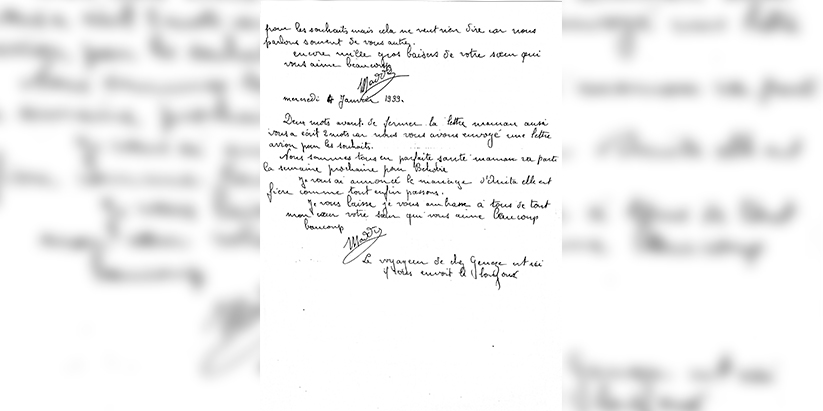 pour les souhaits mais cela ne veut rien dire car nous
parlons souvent de vous autres.
encore mille gros baisers de votre sœur qui
vous aime beaucoup
mercredi 4 Janvier 1939.
Deux mots avant de fermer la lettre maman aussi
vous a écrit 2 mots car nous vous avons envoyé une lettre
avion pour les souhaits.
Nous sommes tous en parfaite santé maman va partir
la semaine prochaine pour
Je vous ai annoncé le mariage d' elle est
fière comme tout enfin passons.
Je vous laisse je vous embrasse à tous de tout
mon cœur votre sœur qui vous aime beaucoup
beaucoup
Le voyageur de chez est ici
il vous envoit le